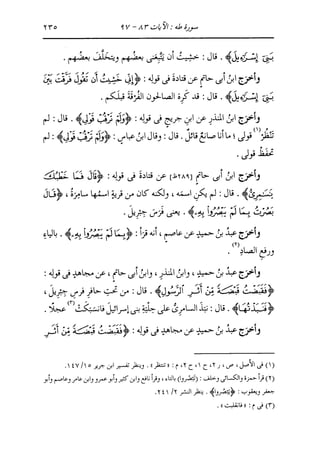 سورة طه : الآيات ٨٣ - ٩٧
٢٣٥
بَنِىٓ إِسْرَٰٓءِيلَ﴾ . قال : خشيتُ أن يَتْبَعَنى بعضُهم ويتخلَّفَ بعضُهم .
وأخرَج ابنُ أبى حاتمٍ عن قتادةَ فى قولِه : ﴿إِنِّى خَشِيتُ أَن تَقُولَ فَرَّقْتَ بَيْنَ
بَنِىٓ إِسْرَٰٓءِيلَ﴾ . قال : قد كرِه الصالحون الفُرْقةَ قبلَكم .
وأخرَج ابنُ المنذرِ عن ابنِ جريجٍ فى قولِه : ﴿وَلَمْ تَرْقُبْ قَوْلِى﴾ . قال : لم
تنتظِرْ(١) قولى ؛ ما أنا صانعٌ قائلٌ . قال : وقال ابنُ عباسٍ : ﴿وَلَمْ تَرْقُبْ قَوْلِى﴾ : لم
تحفَظْ قولى .
وأخرَج ابنُ أبى حاتمٍ [٢٨٩ظ] عن قتادةَ فى قولِه : ﴿قَالَ فَمَا خَطْبُكَ
يَسَٰمِرِىُّ﴾ . قال : لم يكنِ اسمَه ، ولكنه كان من قريةٍ اسمُها سامِرَةُ ، ﴿قَالَ
بَصُرْتُ بِمَا لَمْ يَبْصُرُوا۟ بِهِۦ﴾ . يعنى فرَسَ جبريلَ .
وأخرَج عبدُ بنُ حميدٍ عن عاصمٍ ، أنه قرَأ : ﴿بِمَا لَمْ يَبْصُرُوا۟ بِهِۦ﴾ . بالياءِ
ورفعِ الصادِ(٢) .
وأخرَج عبدُ بنُ حميدٍ ، وابنُ المنذرِ ، وابنُ أبى حاتمٍ ، عن مجاهدٍ فى قولِه :
﴿فَقَبَضْتُ قَبْضَةً مِّنْ أَثَرِ ٱلرَّسُولِ﴾ . قال : من تحتِ حافرِ فرسِ جبريلَ ،
﴿فَنَبَذْتُهَا﴾ . قال : نبَذ السامرىُّ على حِلْيةِ بنى إسرائيلَ فانسَبَكَتْ(٣) عجلًا .
وأخرَج عبدُ بنُ حميدٍ عن مجاهدٍ فى قولِه : ﴿فَقَبَضْتُ قَبْضَةً مِّنْ أَثَرِ
(١) فى الأصل ، ص ، ر ٢، ح ١، ح ٢، م : « تنتظر » . وينظر تفسير ابن جرير ١٦/ ١٤٧.
(٢) قرأ حمزة والكسائى وخلف : (تبصروا) بالتاء ، وقرأ نافع وابن كثير وأبو عمرو وابن عامر وعاصم وأبو
جعفر ويعقوب : ﴿يَبْصُرُوا۟﴾ . ينظر النشر ٢/ ٢٤١.
(٣) فى م : « فانقلبت » .